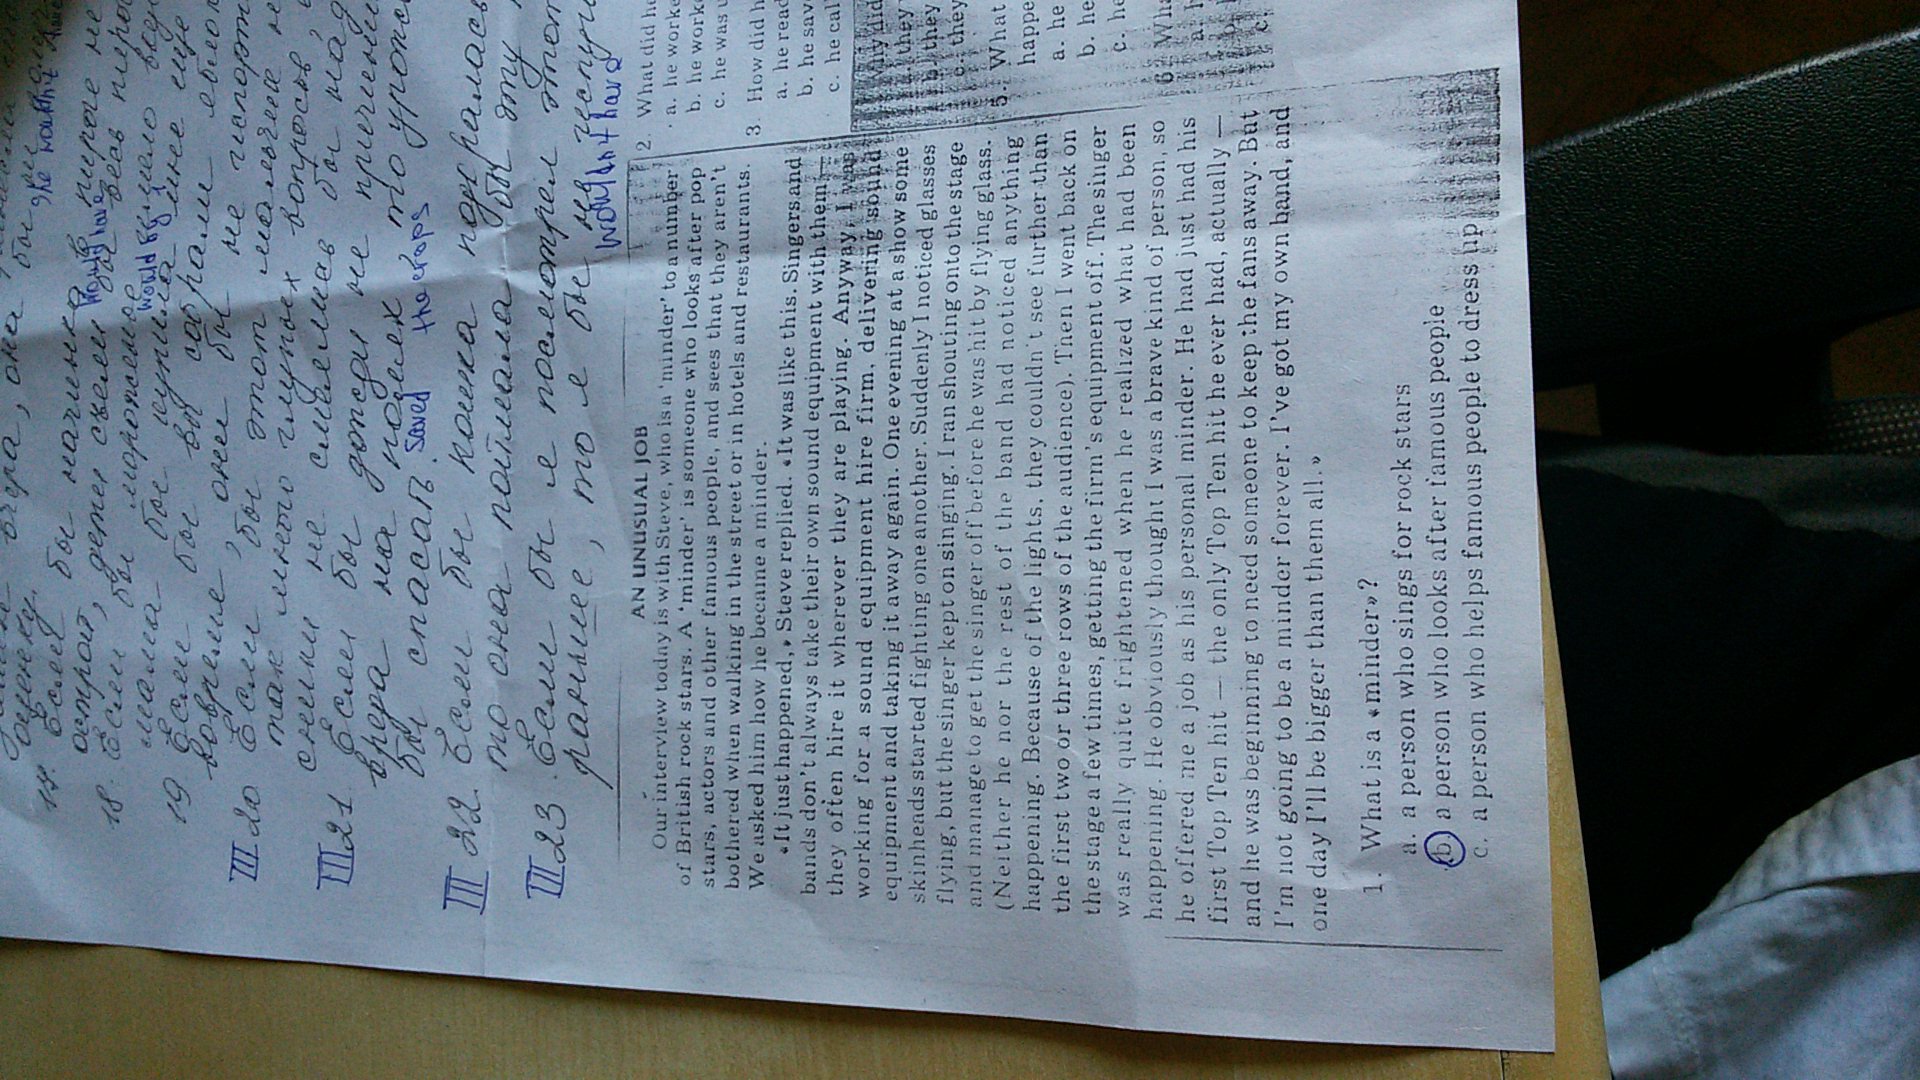 вчера, она бы
оценку.
he wouldn't have
17. Если бы начинка в пироге не
острой, дети съели бы весь пирог
would have
18. Если бы мороженое
would buy
мама бы купила мне ещё
19 Если бы вы собрали яблоки
вовремя, они бы не испорти
III 20 Если бы этот мальчик не
так много глупых вопросов
они не смеялись бы над
III 21. Если бы дожди не причинили
вреда на полях, то урожай
бы спасать.
saved the crops
III 22. Если бы кошка
то она поймала бы эту
III 23 Если бы я посмотрел этот
раньше, то я бы не
wouldn't have
AN UNUSUAL JOB
Our interview today is with Steve, who is a 'minder' to a number
of British rock stars. A 'minder' is someone who looks after pop
stars, actors and other famous people, and sees that they aren't
bothered when walking in the street or in hotels and restaurants.
We asked him how he became a minder.
«It just happened,» Steve replied. «It was like this. Singers and
bands don't always take their own sound equipment with them,—
they often hire it wherever they are playing. Anyway, I was
working for a sound equipment hire firm, delivering sound
equipment and taking it away again. One evening at a show some
skinheads started fighting one another. Suddenly I noticed glasses
flying, but the singer kept on singing. I ran shouting onto the stage
and manage to get the singer off before he was hit by flying glass.
(Neither he nor the rest of the band had noticed anything
happening. Because of the lights, they couldn't see further than
the first two or three rows of the audience). Then I went back on
the stage a few times, getting the firm's equipment off. The singer
was really quite frightened when he realized what had been
happening. He obviously thought I was a brave kind of person, so
he offered me a job as his personal minder. He had just had his
first Top Ten hit — the only Top Ten hit he ever had, actually —
and he was beginning to need someone to keep the fans away. But
I'm not going to be a minder forever. I've got my own band, and
one day I'll be bigger than them all.»
1. What is a «minder»?
a. a person who sings for rock stars
b. a person who looks after famous people
c. a person who helps famous people to dress up
2. What did he
a. he worke
b. he worke
c. he was
3. How did h
a. he read
b. he sav
c. he cal
Why did
a. they
b. they
c. they
5. What
happe
a. he
b. he
c. he
6. Wha
a. h
b. h
c.